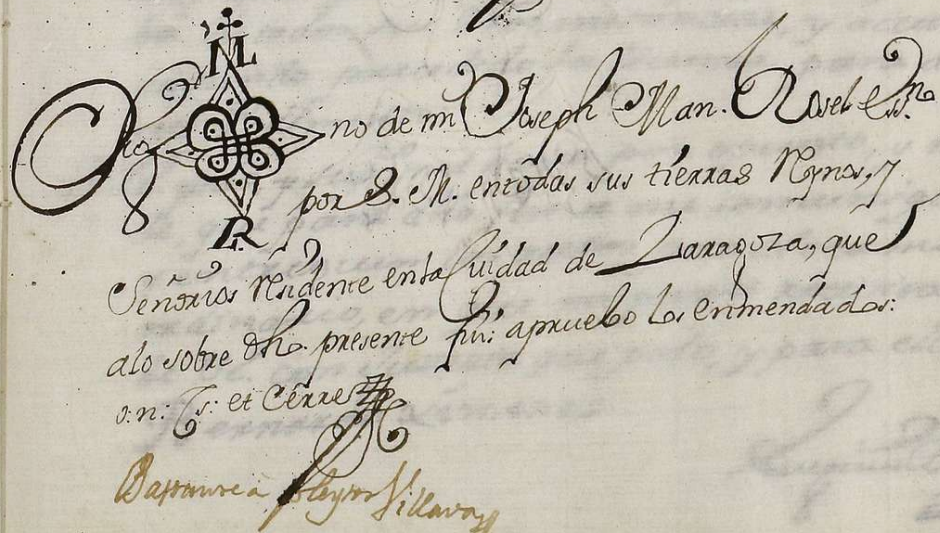 M
Sig no de mi Joseph Man. Rosel Ess.n
por S. M. entodas sus tierras Rynos, y
R
Señorios Residente enla Ciudad de Zaragoza, que
alo sobre dho. presente fui: apruebo los enmendados:
o: n: Ts: et Cerre
Bastante à pleytos Villava